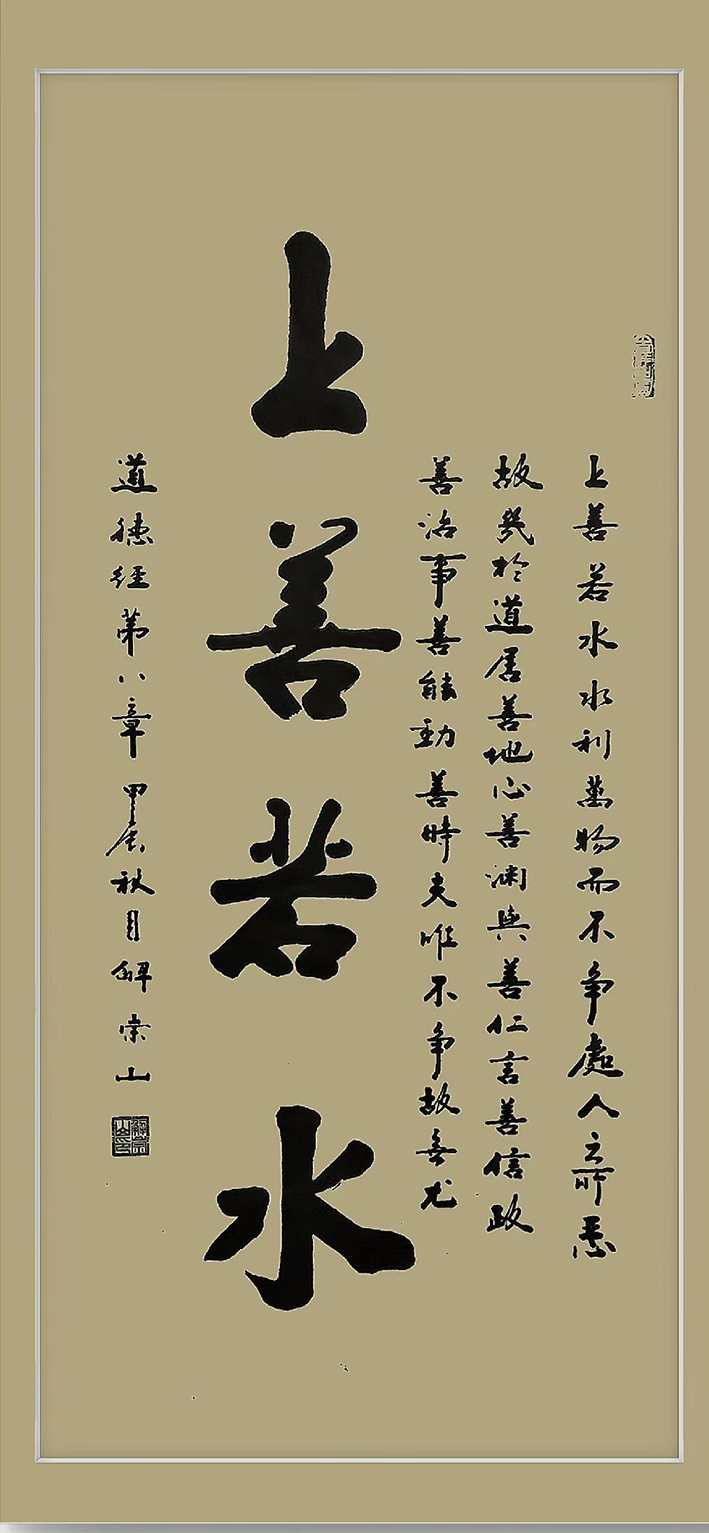 上善若水水利萬物而不争處人之所惡
故幾於道居善地心善渊與善仁言善信政
善治事善能動善時夫唯不争故無尤
上善若水
道德經第八章 甲辰秋月解崇山
解崇山印